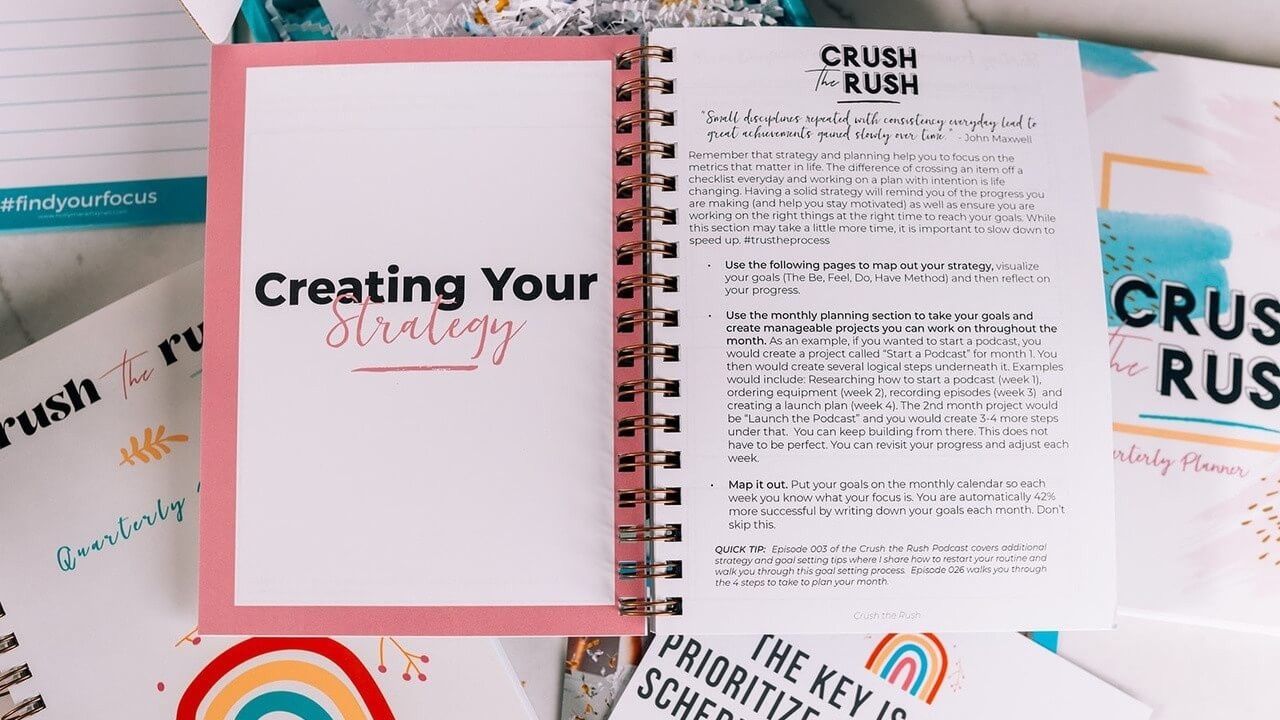 #findyourfocus
Creating Your
Strategy
CRUSH
The RUSH
"Small disciplines repeated with consistency everyday lead to
great achievements gained slowly over time." - John Maxwell
Remember that strategy and planning help you to focus on the
metrics that matter in life. The difference of crossing an item off a
checklist everyday and working on a plan with intention is life
changing. Having a solid strategy will remind you of the progress you
are making (and help you stay motivated) as well as ensure you are
working on the right things at the right time to reach your goals. While
this section may take a little more time, it is important to slow down to
speed up. #trusttheprocess
• Use the following pages to map out your strategy, visualize
your goals (The Be, Feel, Do, Have Method) and then reflect on
your progress.
• Use the monthly planning section to take your goals and
create manageable projects you can work on throughout the
month. As an example, if you wanted to start a podcast, you
would create a project called "Start a Podcast" for month 1. You
then would create several logical steps underneath it. Examples
would include: Researching how to start a podcast (week 1),
ordering equipment (week 2), recording episodes (week 3) and
creating a launch plan (week 4). The 2nd month project would
be "Launch the Podcast" and you would create 3-4 more steps
under that. You can keep building from there. This does not
have to be perfect. You can revisit your progress and adjust each
week.
• Map it out. Put your goals on the monthly calendar so each
week you know what your focus is. You are automatically 42%
more successful by writing down your goals each month. Don't
skip this.
QUICK TIP: Episode 003 of the Crush the Rush Podcast covers additional
strategy and goal setting tips where I share how to restart your routine and
walk you through this goal setting process. Episode 026 walks you through
the 4 steps to take to plan your month.
Crush the Rush
rush the ru
Quarterly
CRUS
the RUS
rterly Planner
THE KEY IS
PRIORITIZE
SCHED